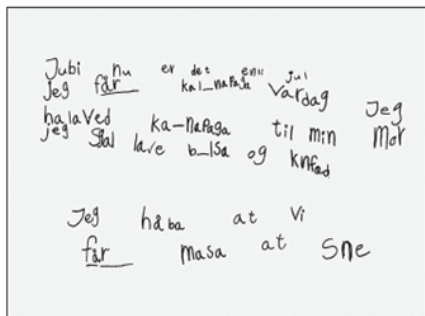 Jubi nu er det enu jul
jeg får kal_naPaga Vardag
halaved ka-naPaga til min Jeg Mor
jeg Skal lave b_lSa og knfad
Jeg håba at Vi
får masa at Sne